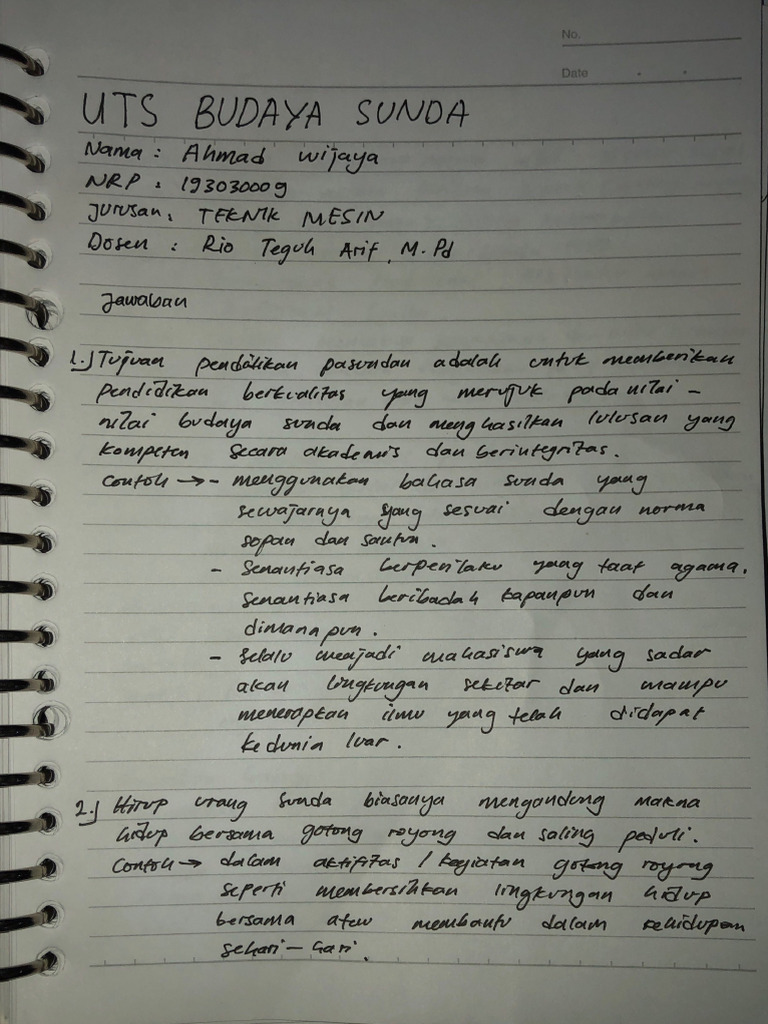 No.
Date
UTS BUDAYA SUNDA
Nama : Ahmad wijaya
NRP : 193030009
Jurusan : TEKNIK MESIN
Dosen : Rio Teguh Arif, M.Pd
Jawaban
1.) Tujuan pendidikan pasundan adalah untuk memberikan
pendidikan berkualitas yang merujuk pada nilai -
nilai budaya sunda dan menghasilkan lulusan yang
kompeten secara akademis dan berintegritas.
Contoh → - menggunakan bahasa sunda yang
sewajarnya yang sesuai dengan norma
sopan dan santun.
- Senantiasa berperilaku yang taat agama.
senantiasa beribadah kapanpun dan
dimanapun.
- Selalu menjadi mahasiswa yang sadar
akan lingkungan sekitar dan mampu
menerapkan ilmu yang telah didapat
kedunia luar.
2.) Hirup urang sunda biasanya mengandung makna
hidup bersama gotong royong dan saling peduli.
Contoh → dalam aktifitas / kegiatan gotong royong
seperti membersihkan lingkungan hidup
bersama atau membantu dalam kehidupan
sehari - hari.